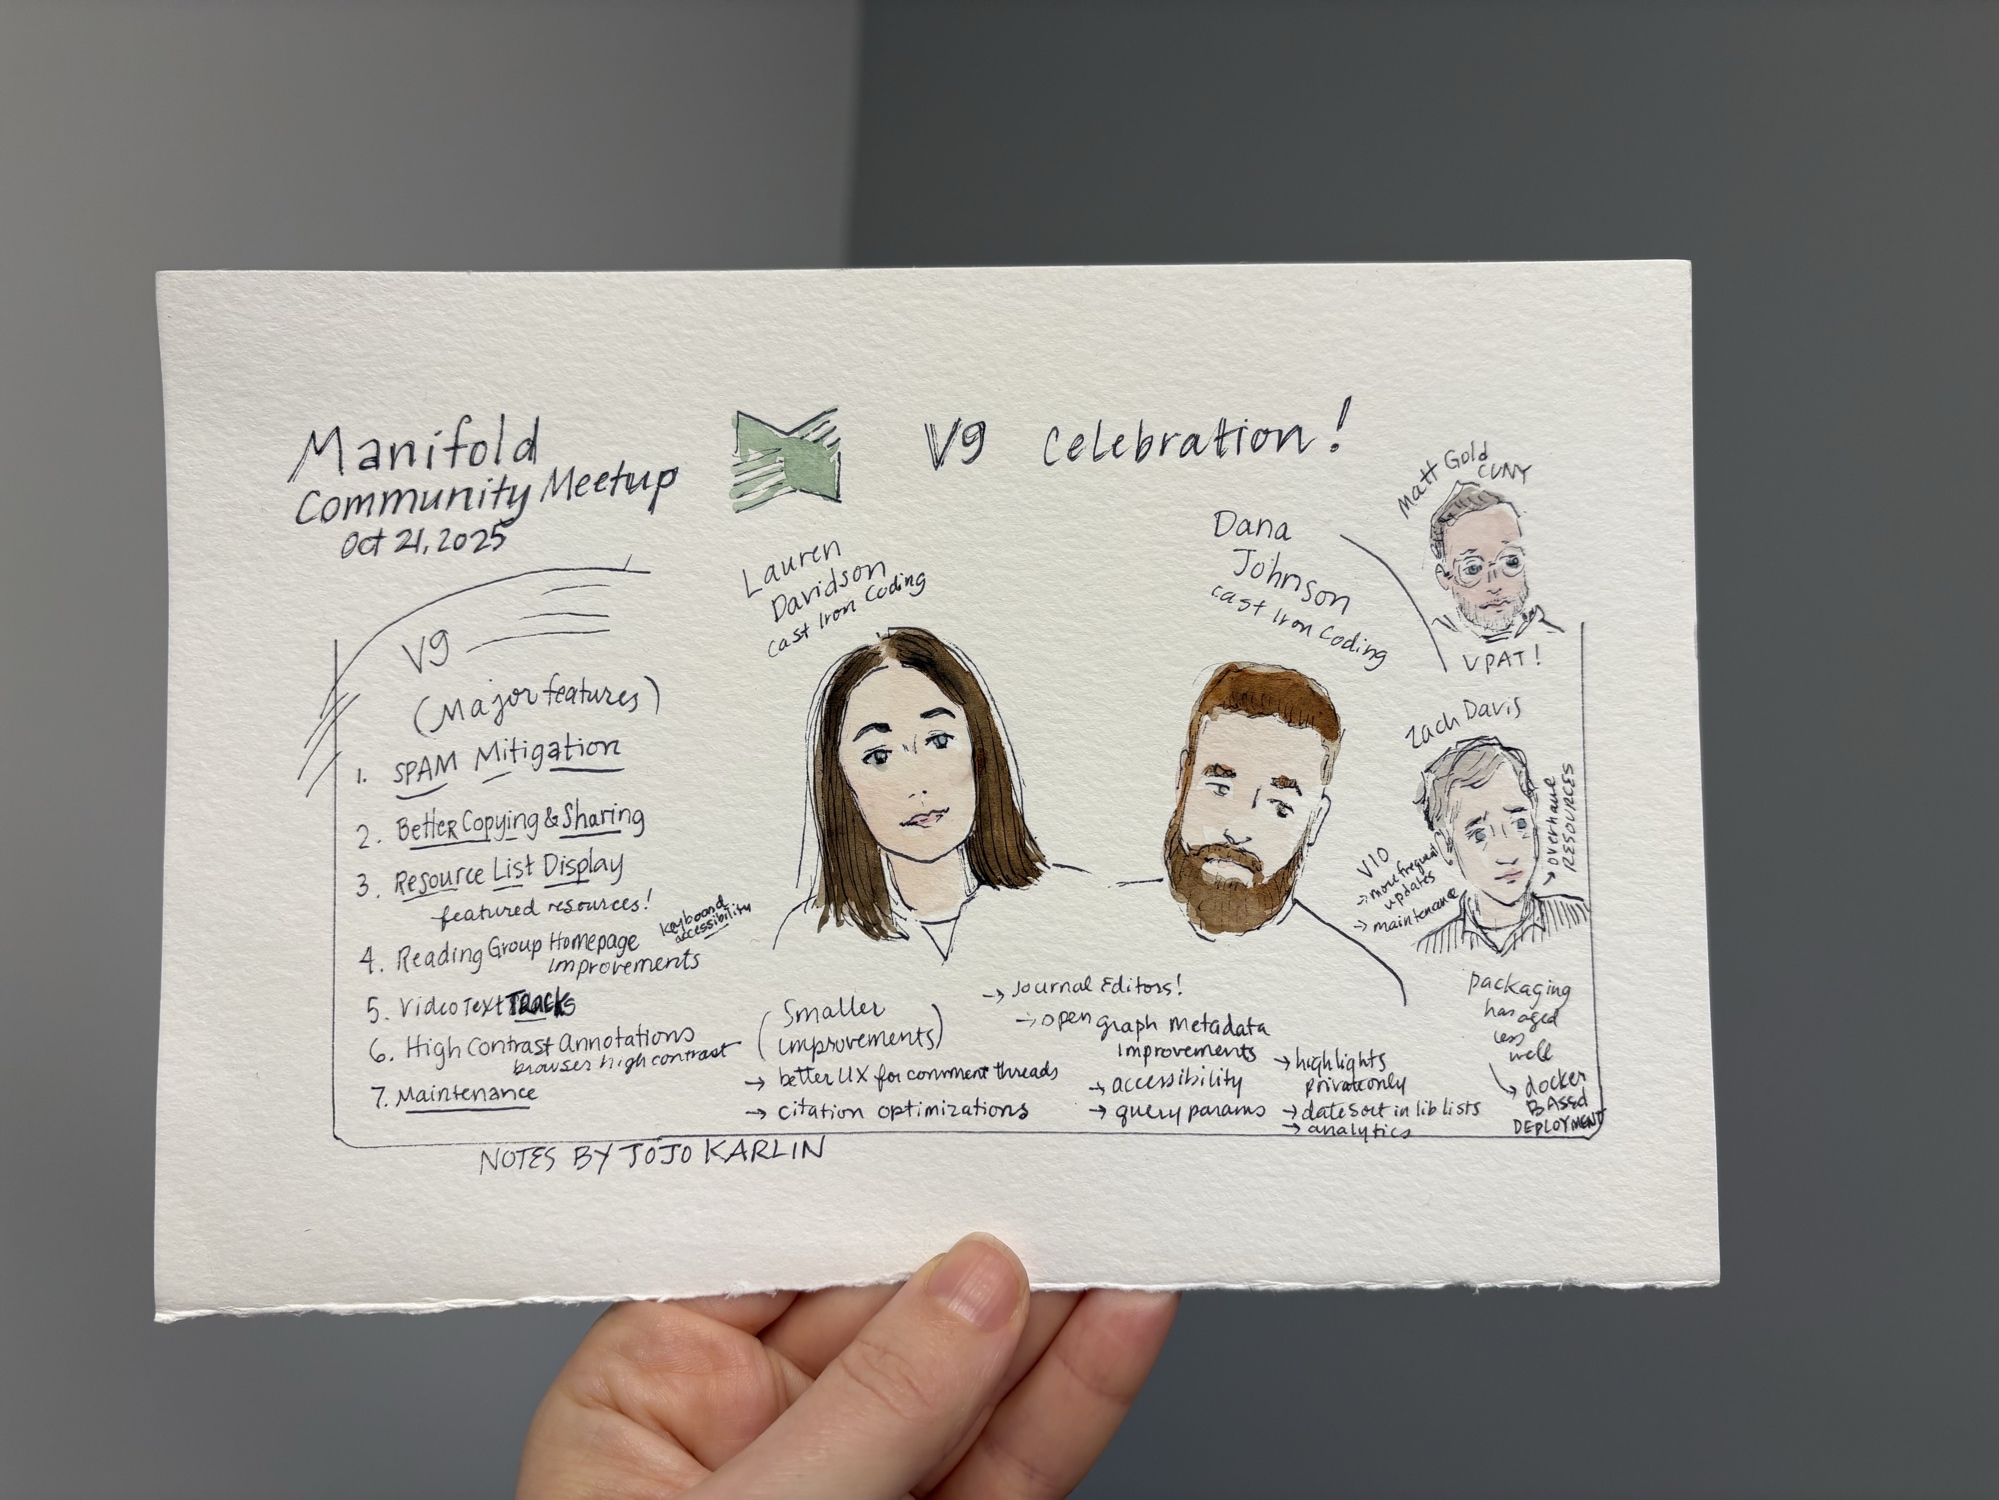 Manifold
Community Meetup
Oct 21, 2025
V9 Celebration!
Lauren
Davidson
Cast Iron Coding
Dana
Johnson
Cast Iron Coding
Matt Gold
CUNY
VPAT!
Zach Davis
V10
→ more frequent
updates
→ maintenance
→ overhaul
RESOURCES
packaging
has aged
less
well
→ docker
BASED
DEPLOYMENT
V9
(Major features)
1. SPAM Mitigation
2. Better Copying & Sharing
3. Resource List Display
featured resources!
4. Reading Group Homepage
Improvements
keyboard
accessibility
5. Video Text Tracks
6. High Contrast Annotations
browser high contrast
7. Maintenance
(Smaller
improvements)
→ better UX for comment threads
→ citation optimizations
→ Journal Editors!
→ open graph metadata
Improvements
→ accessibility
→ query params
→ highlights
private only
→ date sort in lib lists
→ analytics
NOTES BY JOJO KARLIN